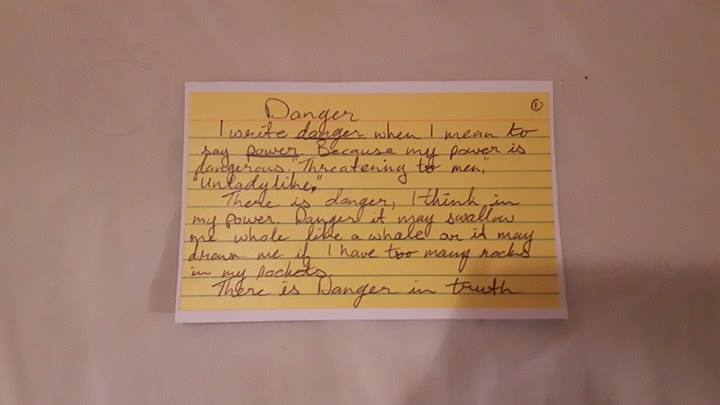 Danger
①
I write danger when I mean to
say power. Because my power is
dangerous. "Threatening to men,"
"Unladylike."
There is danger, I think in
my power. Danger it may swallow
me whole like a whale or it may
drown me if I have too many rocks
in my pockets.
There is Danger in truth